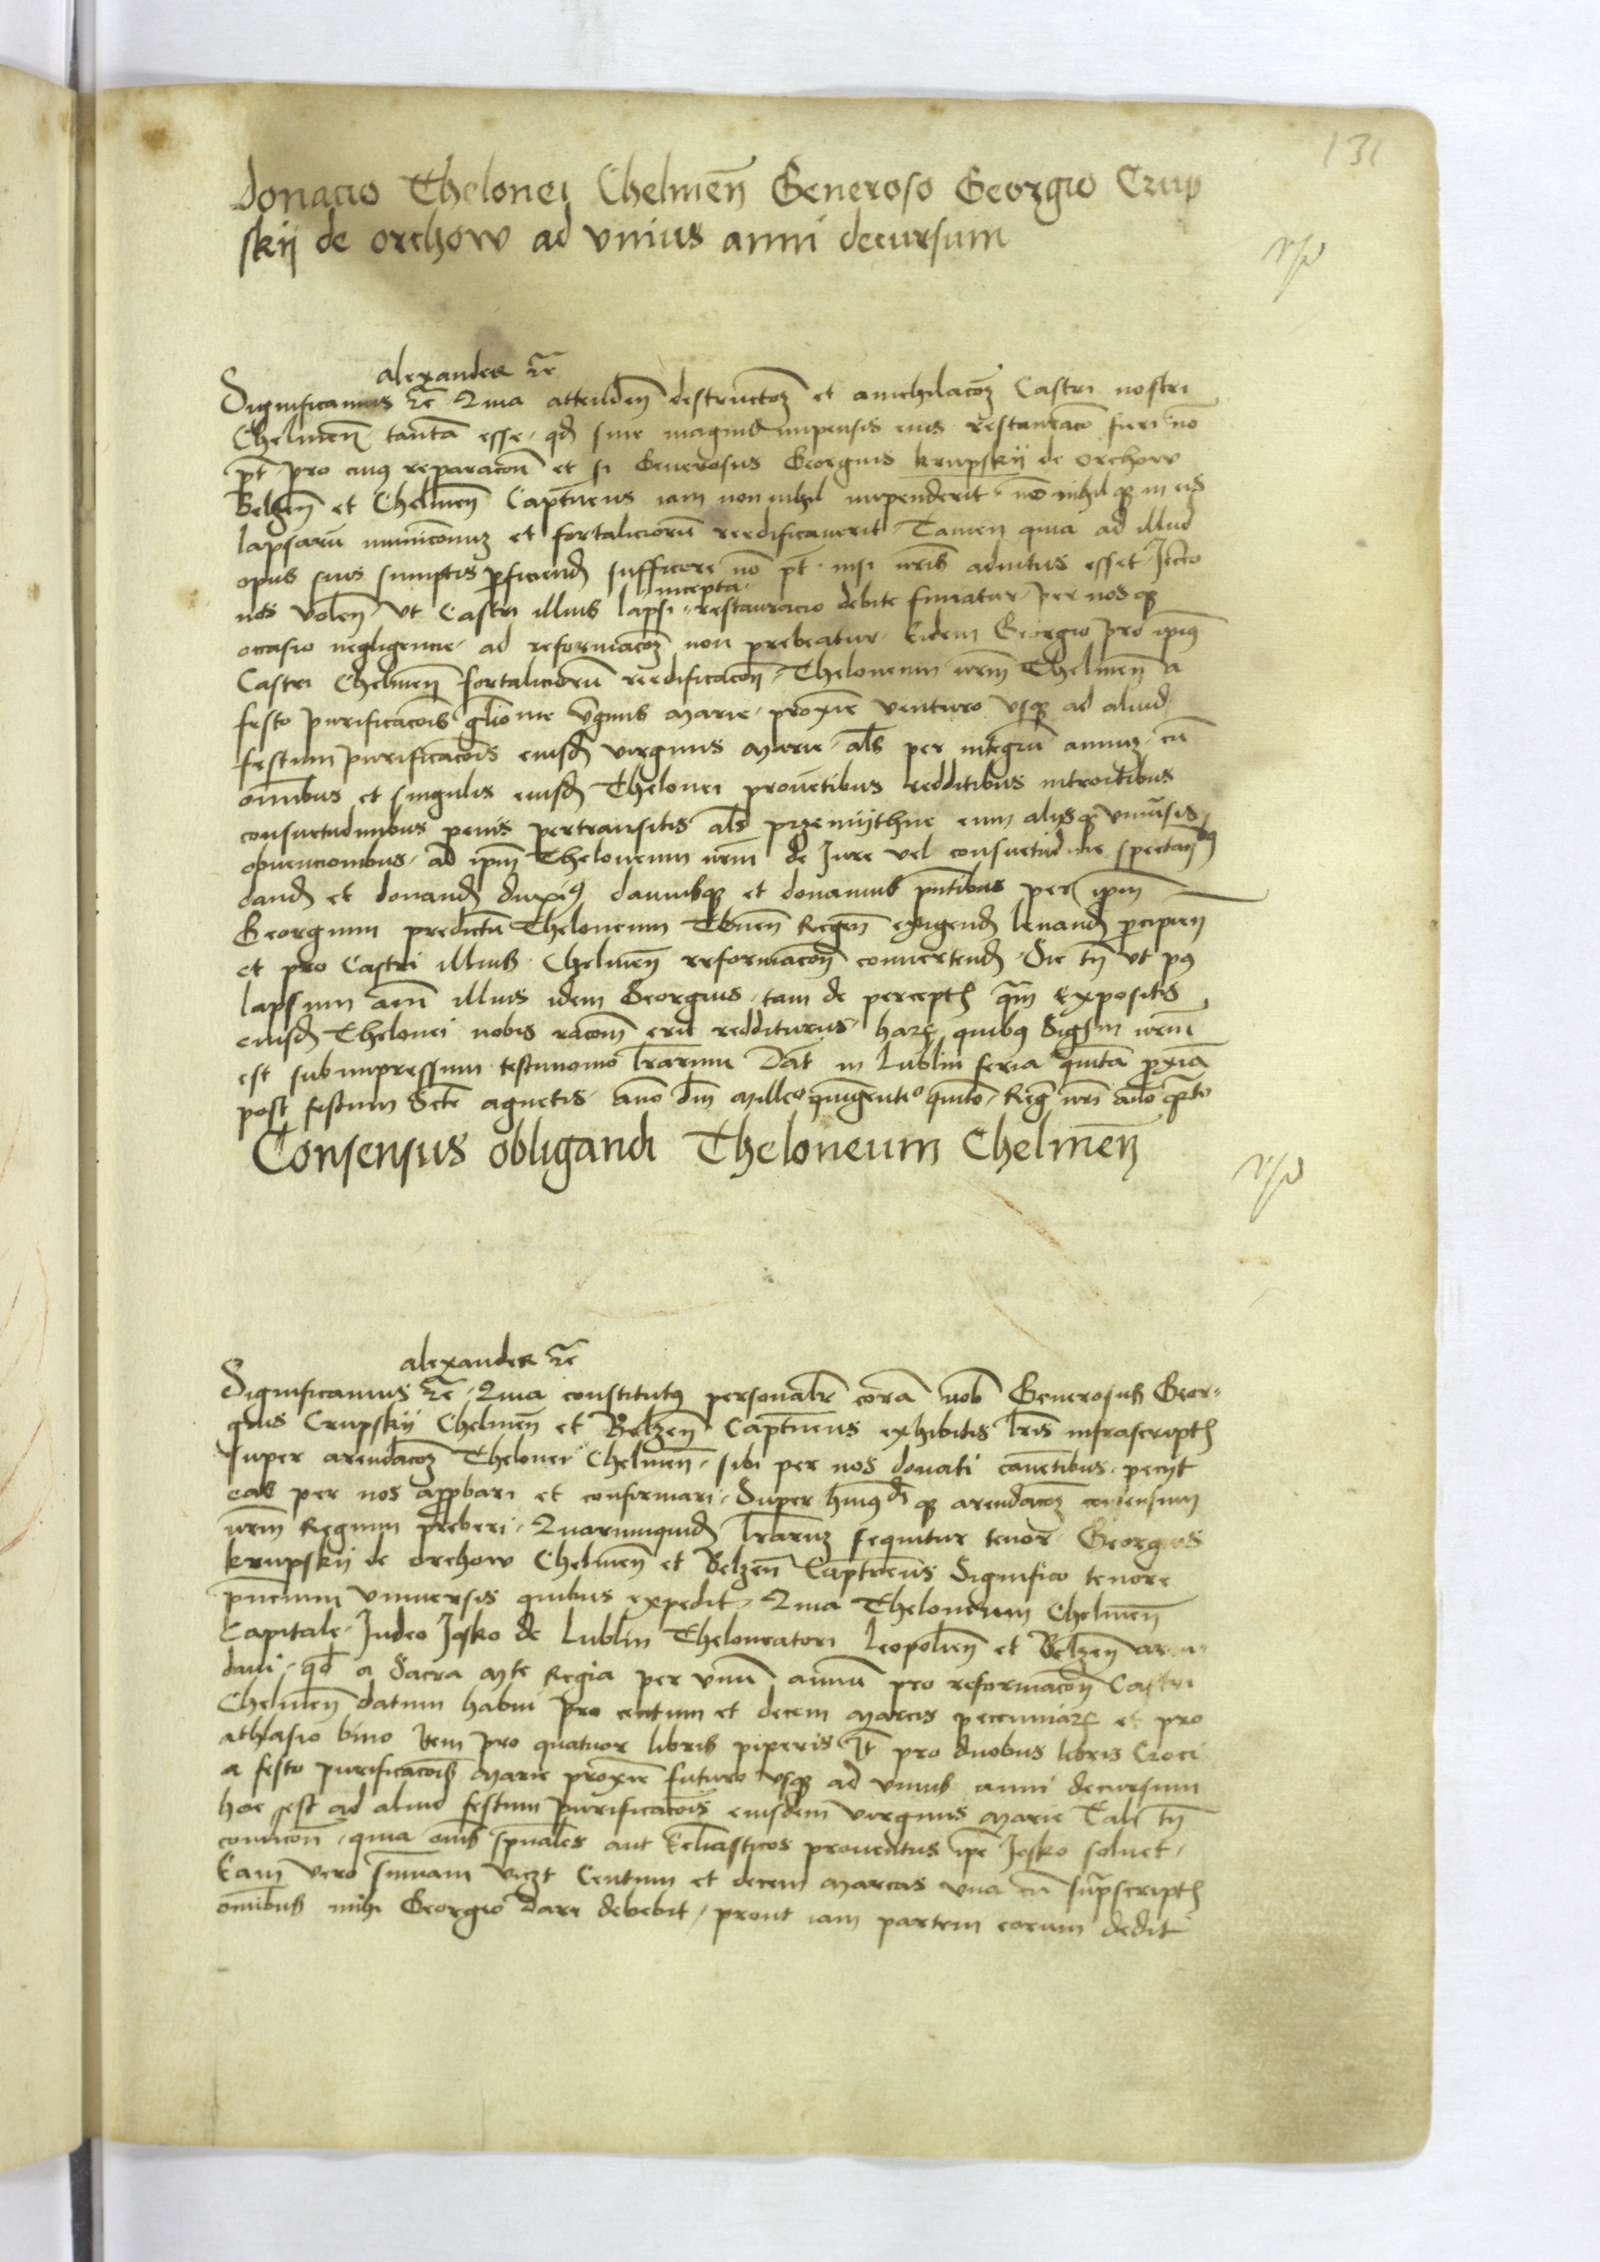 131
Donacio Thelonei Chelmen̄ Generoso Georgio Crup
skij de orchow ad vnius anni decursum
alexander etc̄
Significamus etc̄ Quia attenden̄ destructōȝ et anichilacōȝ Castri nostri
Chelmen̄ tantā esse qđ sine magnis impensis eius restauracō fieri nō
pt̄ pro cuius reparacōn̄ et si Generosus Georgius krupskij de orchow
Belzen̄ et Chelmen̄ Captneus iam non nihil impenderit nō nihil qȝ in eis
lapsarū municōnuȝ et fortaliciorū reedificauerit Tamen quia ad illud
opus suis sumptis ꝑficiend̄ sufficere nō pt̄ nisi nr̄is adiutus esset Iccō
incepta
nos volen̄ vt Castri illius lapsi restauracio debite finiatur per nos qȝ
occasio negligencie ad reformacōȝ non prebeatur Eidem Georgio pro ipiꝰ
Castri Chelmen̄ fortaliciorū reedificacōn̄ Theloneum nr̄m Chelmen̄ a
festo purificacōis gl̄iose v̄ginis Marie proxīe venturo vsqȝ ad aliud
festum purificacōis eiusd̄ virginis Marie al̄s per integrū annuȝ cū
om̄ibus et singulis eiusd̄ Thelonei prouētibus redditibus introitibus
consuetudinibus penis pertransitis al̄s przemijthne eum alijsqȝ vniūsis
obuencionibus ad ipm̄ Theloneum nr̄m de Iure vel consuetudine spectan̄bꝰ
dand̄ et donand̄ duxiꝰ damusqȝ et donamus pn̄tibus per ipm̄
Georgium predictū Theloneum Tenen̄ Regen̄ exigend̄ leuand̄ ꝑcipien̄
et pro Castri illius Chelmen̄ reformacōn̄ conuertend̄ Sic tn̄ vt pꝰ
lapsum an̄i illius idem Georgius tam de perceptis qm̄ Expositis
eiusd̄ Thelonei nobis racōm̄ erit redditurus harꝝ quibꝰ Sigm̄ nr̄m
est subimpressum testimonio lr̄arum Dat̄ in Lublin feria quintā ꝓxīa
post festum Scte agnetis Anō Dn̄i Milleᵒ quingenteᵒ quīto Reg̃ nr̄i anō qr̄to
Consensus obligandi Theloneum Chelmen̄
alexander etc̄
Significamus etc̄ Quia constitutꝰ personalr̄ corā nob̄ Generosus Geor-
gius Crupskij Chelmen̄ et Belzen̄ Captneus exhibitis lr̄is infrascriptis
super arendacōȝ Thelonei Chelmen̄ sibi per nos donati cauētibus pecijt
eas per nos app̄bari et confirmari Super hm̄oi qȝ arendacōȝ consensum
nr̄m Regium preberi Quarumquid̄ lr̄aruȝ sequitur tenor Georgius
krupskij de orchow Chelmen̄ et Belzen̄ Captneus Significo tenore
pn̄cium vniuersis quibus expedit Quia Theloneum Chelmen̄
Capitale Iudeo Josko de Lublin Theloneatori Leopolien̄ et Belzen̄ aren
daui qđ a Sacra Mte Regia per vnū annū pro reformacōn̄ Castri
Chelmen̄ datum habui pro centum et decem Marcis pecuniarꝝ et pro
athlasio bino Item pro quatuor libris piperis It̄ pro duobus libris Croci
a festo purificacōis Marie proxīe futuro vsqȝ ad vnius anni decursum
hoc est ad aliud festum purificacōis eiusdem virginis Marie Tali tn̄
condicōn̄ quia om̄s spūales aut Ecl̄iasticos prouentus ipe Josko soluet
Eam vero sum̄am viczt Centum et decem Marcas vna cū suprascriptis
om̄ibus mihi Georgio Dare debebit prout iam partem eorum dedit